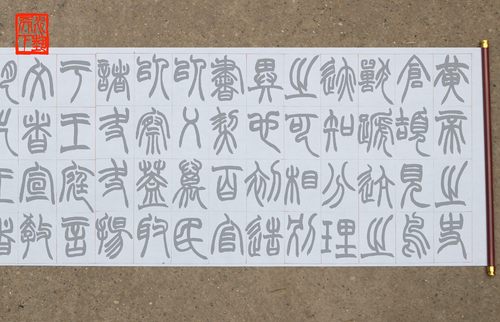 黃帝之史
倉頡見鳥
獸蹏迒之
迹知分理
之可相別
異也初造
書契百官
以乂萬民
以察蓋取
諸夬夬揚
于王庭言
文者宣教